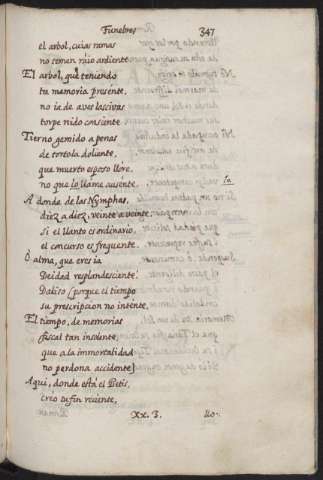 Funebres 347
el arbol, cuias ramas
no temen raio ardiente.
El arbol, que teniendo
tu memoria presente,
no ia de aves lascivas
torpe nido consiente.
Tierno gemido apenas
de tortola doliente,
que muerto esposo llore,
no que lo llame ausente. la
A donde de las Nymphas,
diez a diez, veinte a veinte,
si el llanto es ordinario,
el concurso es frequente.
O alma, que eres ia
Deidad resplandesciente!
Daliso (porque el tiempo
su prescripcion no intente,
El tiempo, de memorias
fiscal tan insolente,
que a la immortalidad
no perdona accidente)
Aqui, donde está el Betis,
creo de fin reciente,
Xx. 3. llo-